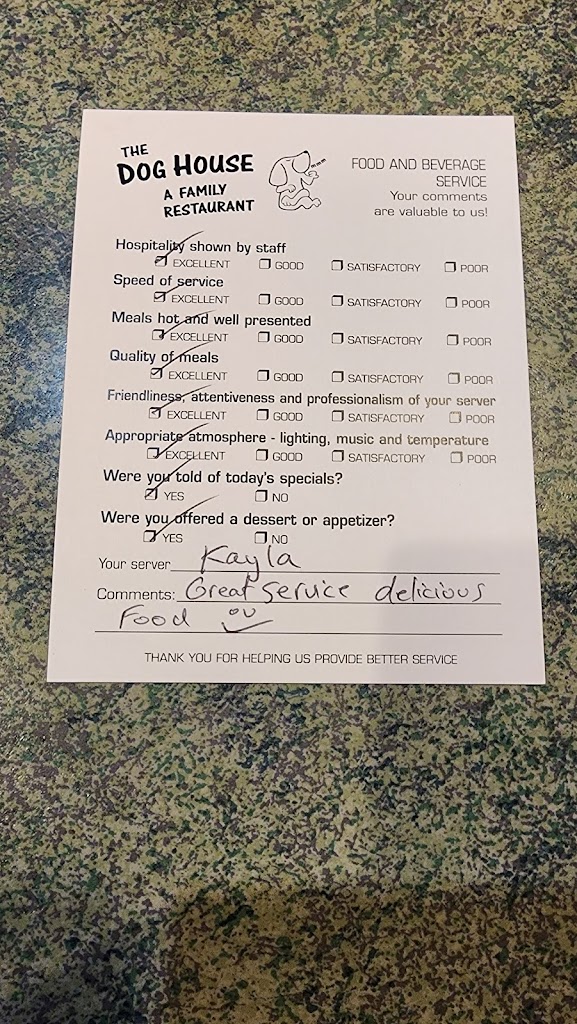 THE
DOG HOUSE
A FAMILY
RESTAURANT
FOOD AND BEVERAGE
SERVICE
Your comments
are valuable to us!
Hospitality shown by staff
☑ EXCELLENT ❒ GOOD ❒ SATISFACTORY ❒ POOR
Speed of service
☑ EXCELLENT ❒ GOOD ❒ SATISFACTORY ❒ POOR
Meals hot and well presented
☑ EXCELLENT ❒ GOOD ❒ SATISFACTORY ❒ POOR
Quality of meals
☑ EXCELLENT ❒ GOOD ❒ SATISFACTORY ❒ POOR
Friendliness, attentiveness and professionalism of your server
☑ EXCELLENT ❒ GOOD ❒ SATISFACTORY ❒ POOR
Appropriate atmosphere - lighting, music and temperature
☑ EXCELLENT ❒ GOOD ❒ SATISFACTORY ❒ POOR
Were you told of today's specials?
☑ YES ❒ NO
Were you offered a dessert or appetizer?
☑ YES ❒ NO
Your server Kayla
Comments: Great service delicious
Food
THANK YOU FOR HELPING US PROVIDE BETTER SERVICE